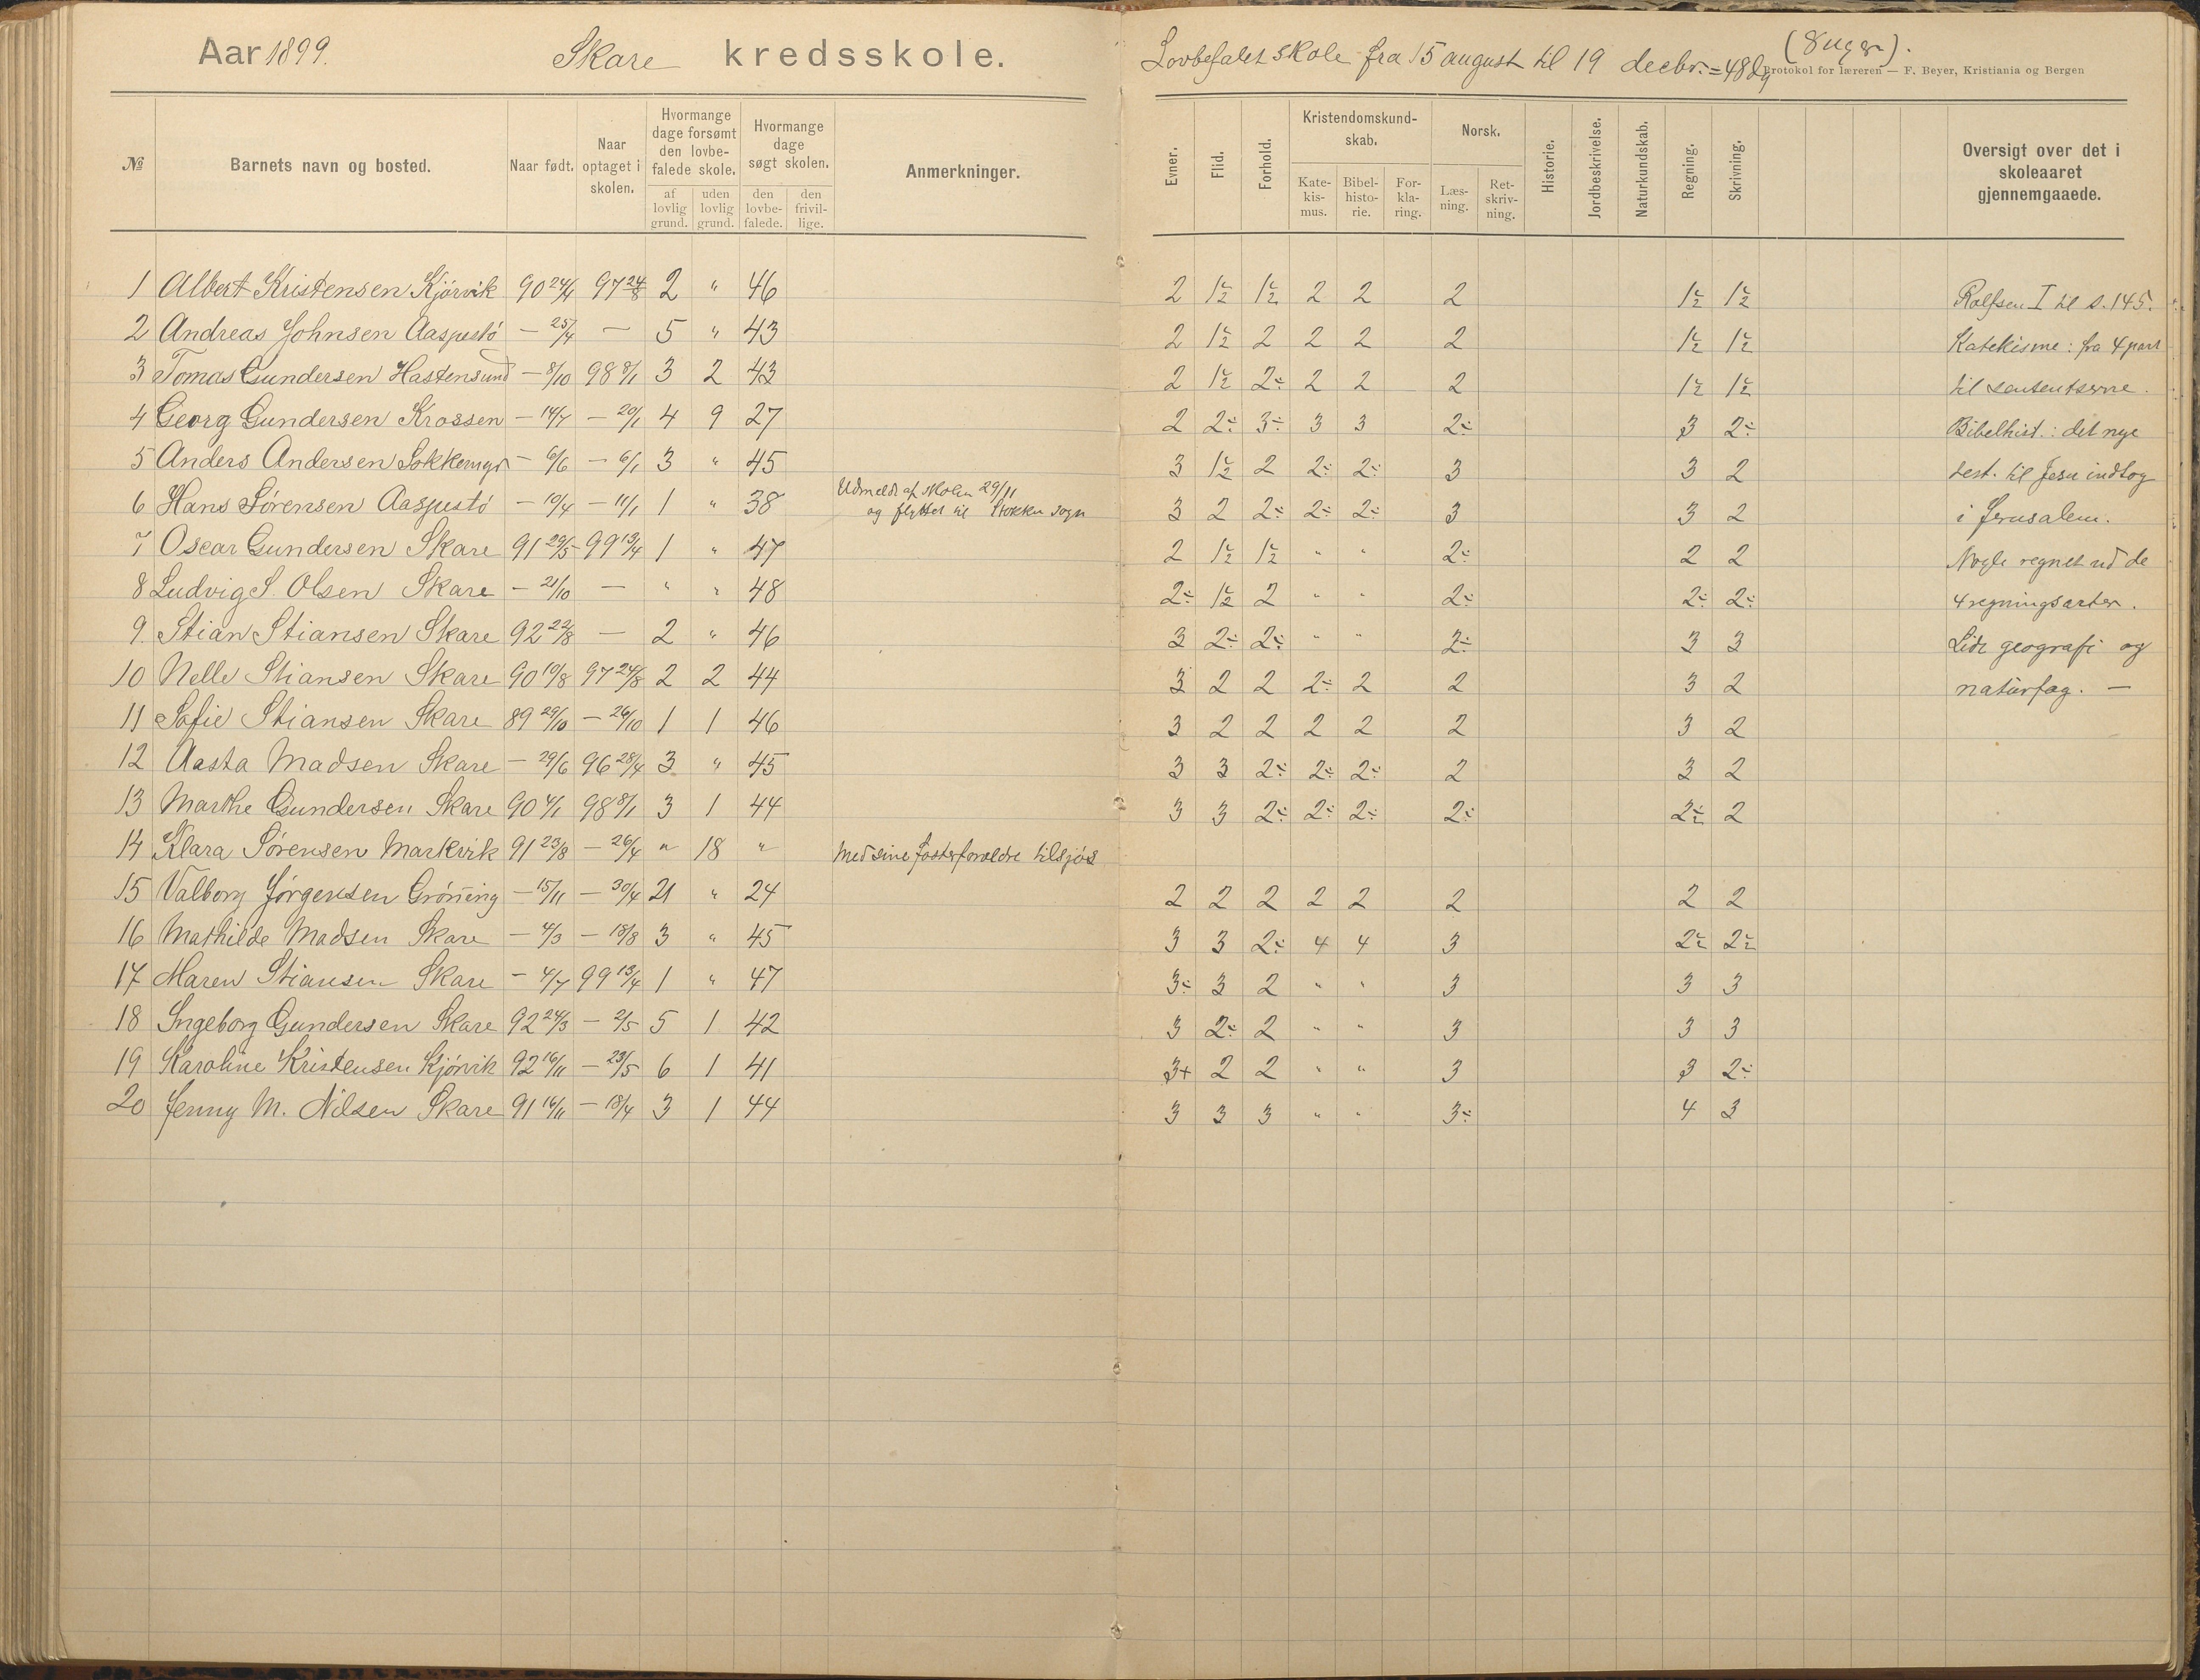 Aar 1899. Skare kredsskole.
№ Barnets navn og bosted. Naar født. Naar optaget i skolen. Hvormange dage forsømt den lovbefalede skole. af lovlig grund. uden lovlig grund. Hvormange dage søgt skolen. den lovbefalede. den frivillige. Anmerkninger.
1 Albert Kristensen Kjörvik 90 24/4 97 24/8 2 " 46
2 Andreas Johnsen Aaspustö — 25/4 — 5 " 43
3 Tomas Gundersen Hastensund — 8/10 98 8/1 3 2 43
4 Georg Gundersen Krossen — 14/7 — 20/1 4 9 27
5 Anders Andersen Sokkemyr — 6/6 — 6/1 3 " 45
6 Hans Sörensen Aaspustö — 10/4 — 11/1 1 " 38 Udmeldt af skolen 29/11 og flyttet til Stokken sogn
7 Oscar Gundersen Skare 91 29/5 99 13/4 1 " 47
8 Ludvig S. Olsen Skare — 21/10 — " " 48
9. Stian Stiansen Skare 92 22/8 — 2 " 46
10 Nelle Stiansen Skare 90 10/8 97 24/8 2 2 44
11 Sofie Stiansen Skare 89 29/10 — 26/10 1 1 46
12 Aasta Madsen Skare — 29/6 96 28/4 3 " 45
13 Marthe Gundersen Skare 90 4/1 98 8/1 3 1 44
14 Klara Sörensen Markvik 91 23/8 — 26/4 " 18 " Med sine fosterforældre tilsjös
15 Valborg Jörgensen Gröning — 15/11 — 30/4 21 " 24
16 Mathilde Madsen Skare — 4/3 — 18/8 3 " 45
17 Maren Stiansen Skare — 4/7 99 13/4 1 " 47
18 Ingeborg Gundersen Skare 92 24/3 — 2/5 5 1 42
19 Karoline Kristensen Kjörvik 92 16/11 — 23/5 6 1 41
20 Jenny M. Nilsen Skare 91 16/11 — 18/4 3 1 44
Lovbefalet skole fra 15 august til 19 decbr. = 48 dg (8 uger).
Protokol for læreren — F. Beyer, Kristiania og Bergen
Evner. Flid. Forhold. Kristendomskundskab. Katekismus. Bibelhistorie. Forklaring. Norsk. Læsning. Retskrivning. Historie. Jordbeskrivelse. Naturkundskab. Regning. Skrivning. Oversigt over det i skoleaaret gjennemgaaede.
2 1½ 1½ 2 2 2 1½ 1½ Rolfsen I til s. 145.
2 1½ 2 2 2 2 1½ 1½ Katekisme: fra 4 part
2 1½ 2÷ 2 2 2 1½ 1½ til sententserne.
2 2÷ 3÷ 3 3 2÷ 3 2÷ Bibelhist.: det nye
3 1½ 2 2÷ 2÷ 3 3 2 test. til Jesu indtog
3 2 2÷ 2÷ 2÷ 3 3 2 i Jerusalem.
2 1½ 1½ " " 2÷ 2 2 Nogle regnet ud de
2÷ 1½ 2 " " 2÷ 2÷ 2÷ 4 regningsarter.
3 2÷ 2÷ " " 2÷ 3 3 Lidt geografi og
3 2 2 2÷ 2 2 3 2 naturfag. —
3 2 2 2 2 2 3 2
3 3 2÷ 2÷ 2÷ 2 3 2
3 3 2÷ 2÷ 2÷ 2÷ 2½ 2
2 2 2 2 2 2 2 2
3 3 2÷ 4 4 3 2½ 2½
3÷ 3 2 " " 3 3 3
3 2÷ 2 " " 3 3 3
3+ 2 2 " " 3 3 2÷
3 3 3 " " 3÷ 4 3